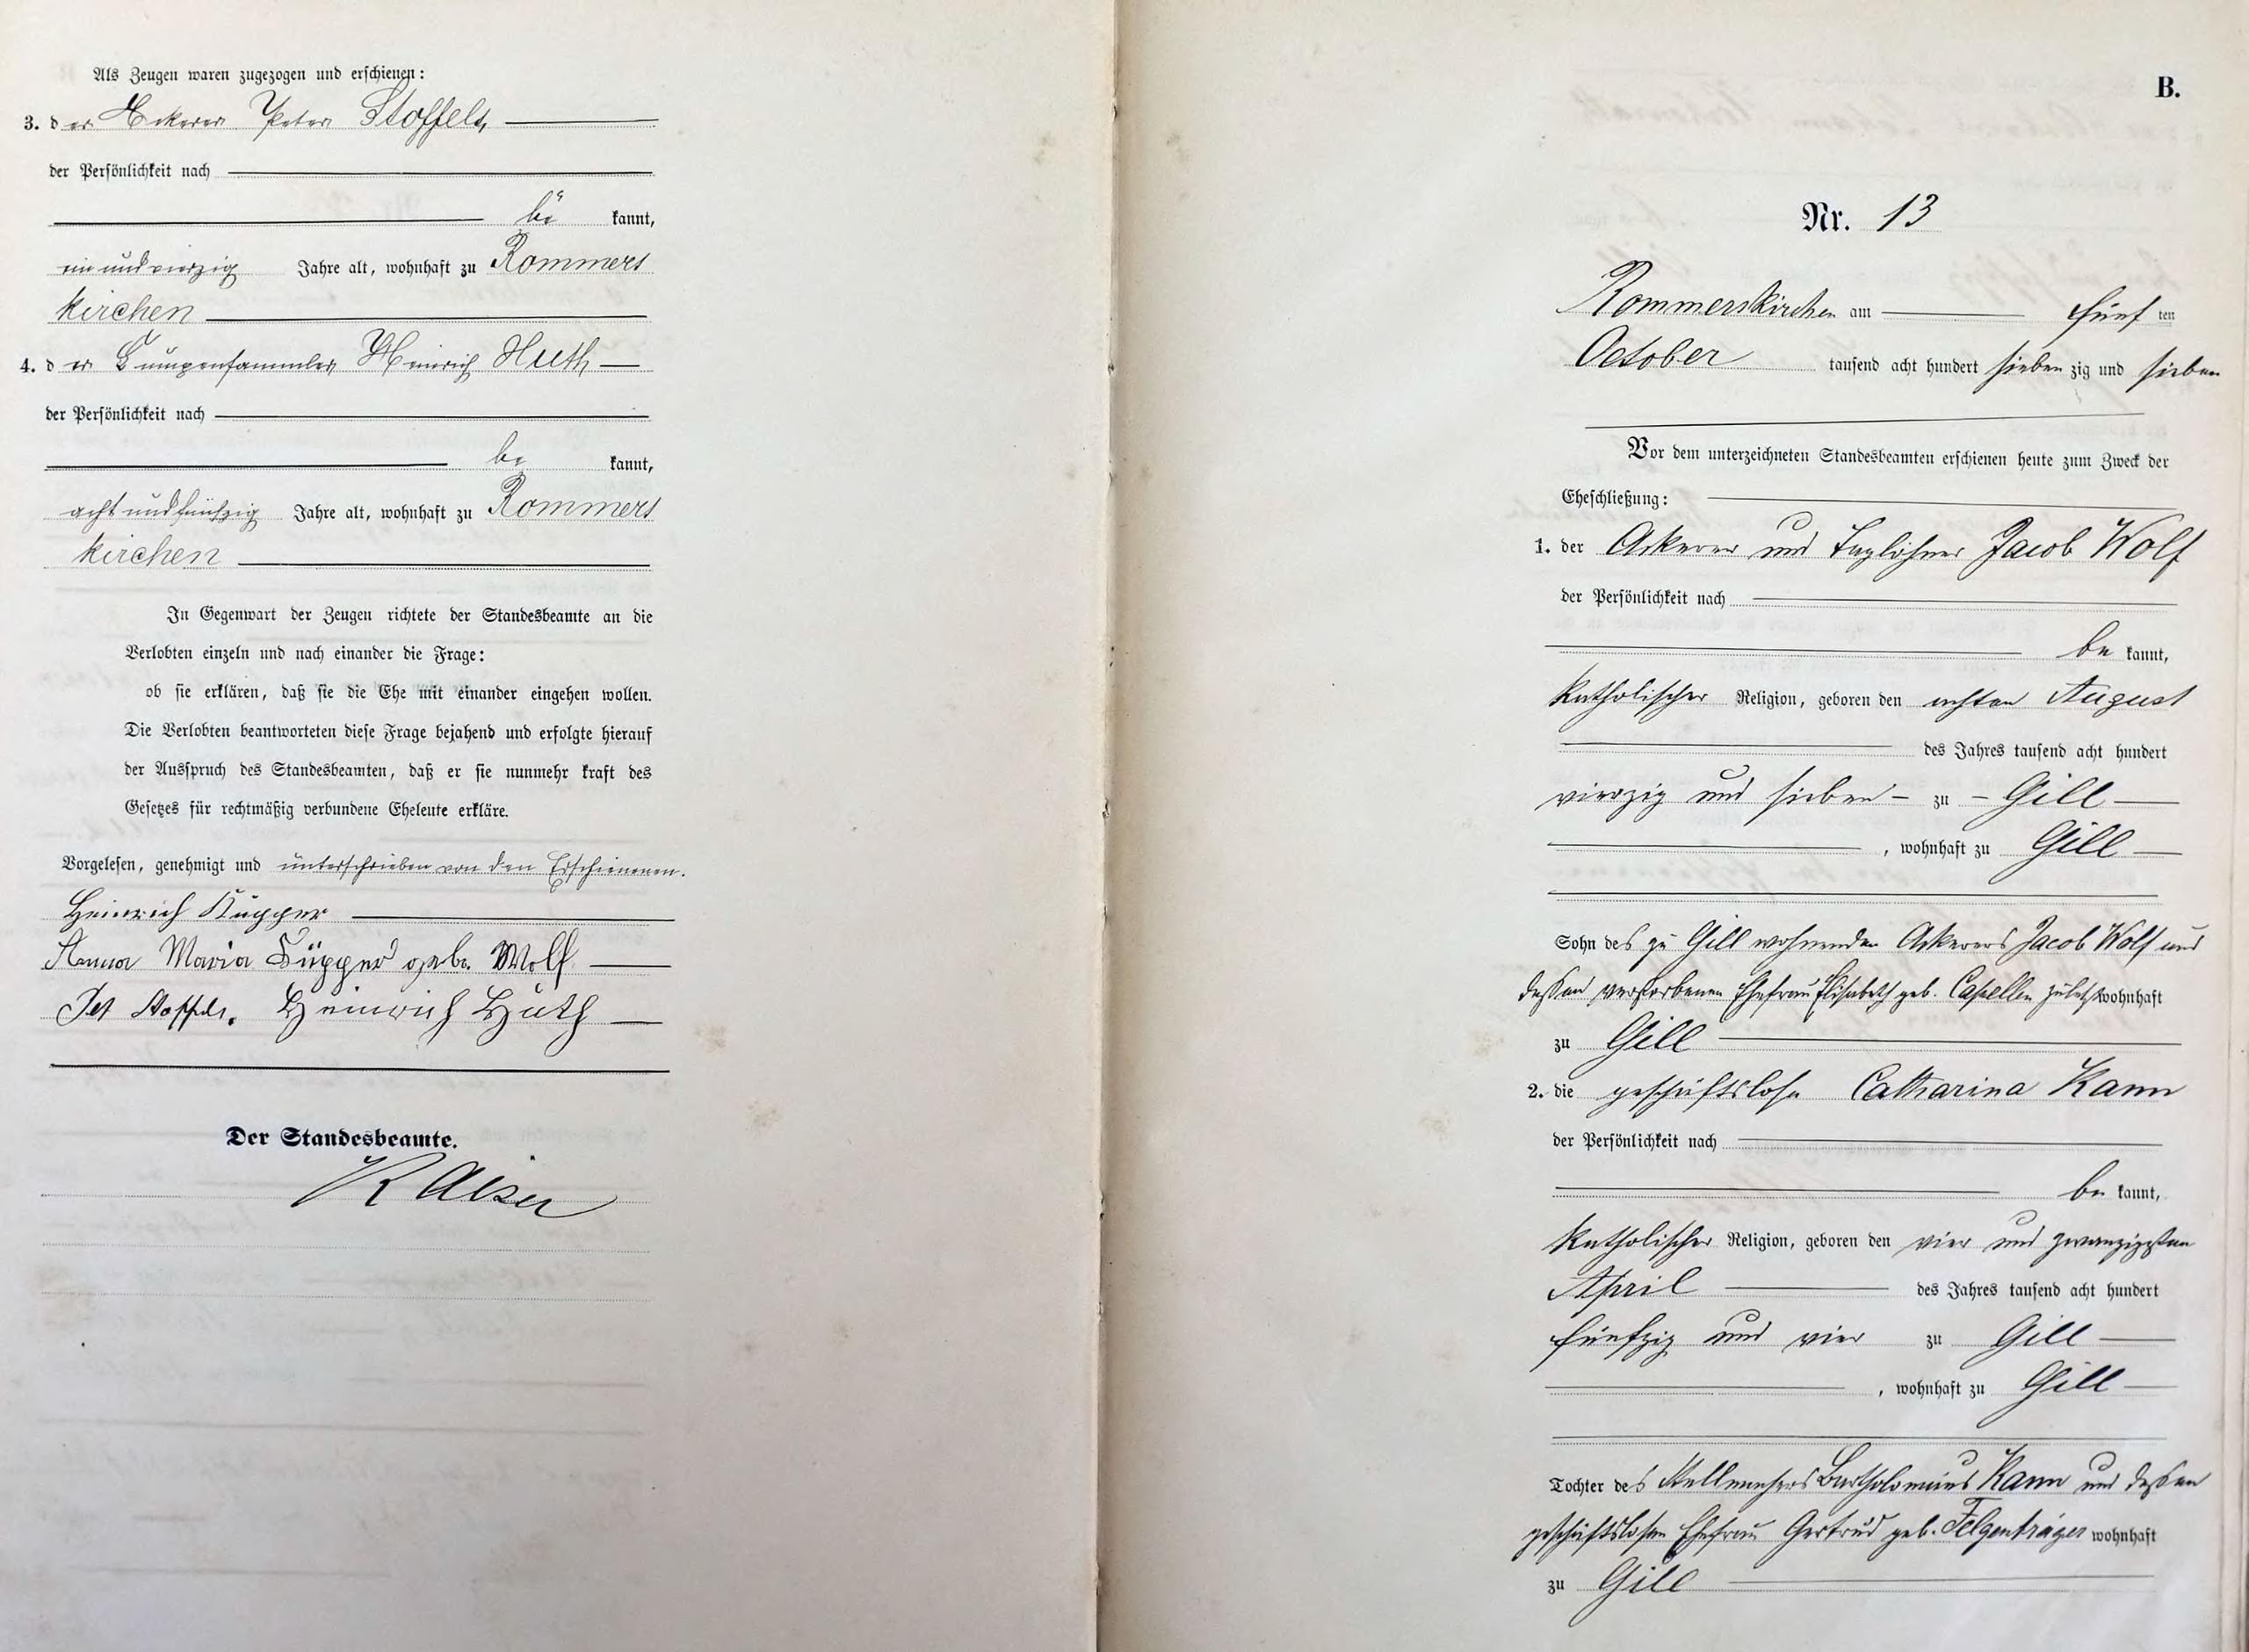 Als Zeugen waren zugezogen und erschienen:
3. der Ackerer Peter Stoffels,
der Persönlichkeit nach
be kannt,
ein und vierzig Jahre alt, wohnhaft zu Rommers
kirchen
4. der Lumpensammler Heinrich Huth
der Persönlichkeit nach
be kannt,
acht und fünfzig Jahre alt, wohnhaft zu Rommers
kirchen
In Gegenwart der Zeugen richtete der Standesbeamte an die
Verlobten einzeln und nach einander die Frage:
ob sie erklären, daß sie die Ehe mit einander eingehen wollen.
Die Verlobten beantworteten diese Frage bejahend und erfolgte hierauf
der Ausspruch des Standesbeamten, daß er sie nunmehr kraft des
Gesetzes für rechtmäßig verbundene Eheleute erkläre.
Vorgelesen, genehmigt und unterschrieben von den Erschienenen.
Heinrich Küpper
Anna Maria Küpper geb. Wolf
Pet Stoffels. Heinrich Huth
Der Standesbeamte.
Kaiser
B.
Nr. 13
Rommerskirchen am fünf ten
October tausend acht hundert sieben zig und sieben
Vor dem unterzeichneten Standesbeamten erschienen heute zum Zweck der
Eheschließung:
1. der Ackerer und Taglöhner Jacob Wolf
der Persönlichkeit nach
be kannt,
katholischer Religion, geboren den achten August
des Jahres tausend acht hundert
vierzig und sieben zu Gill
, wohnhaft zu Gill
Sohn des zu Gill wohnenden Ackerers Jacob Wolf und
dessen verstorbenen Ehefrau Elisabeth geb. Capellen zuletzt wohnhaft
zu Gill
2. die geschäftslose Catharina Kann
der Persönlichkeit nach
be kannt,
katholischer Religion, geboren den vier und zwanzigsten
April des Jahres tausend acht hundert
fünfzig und vier zu Gill
, wohnhaft zu Gill
Tochter des Stellmachers Bartholomäus Kann und dessen
geschäftslosen Ehefrau Gertrud geb. Felgenträger wohnhaft
zu Gill